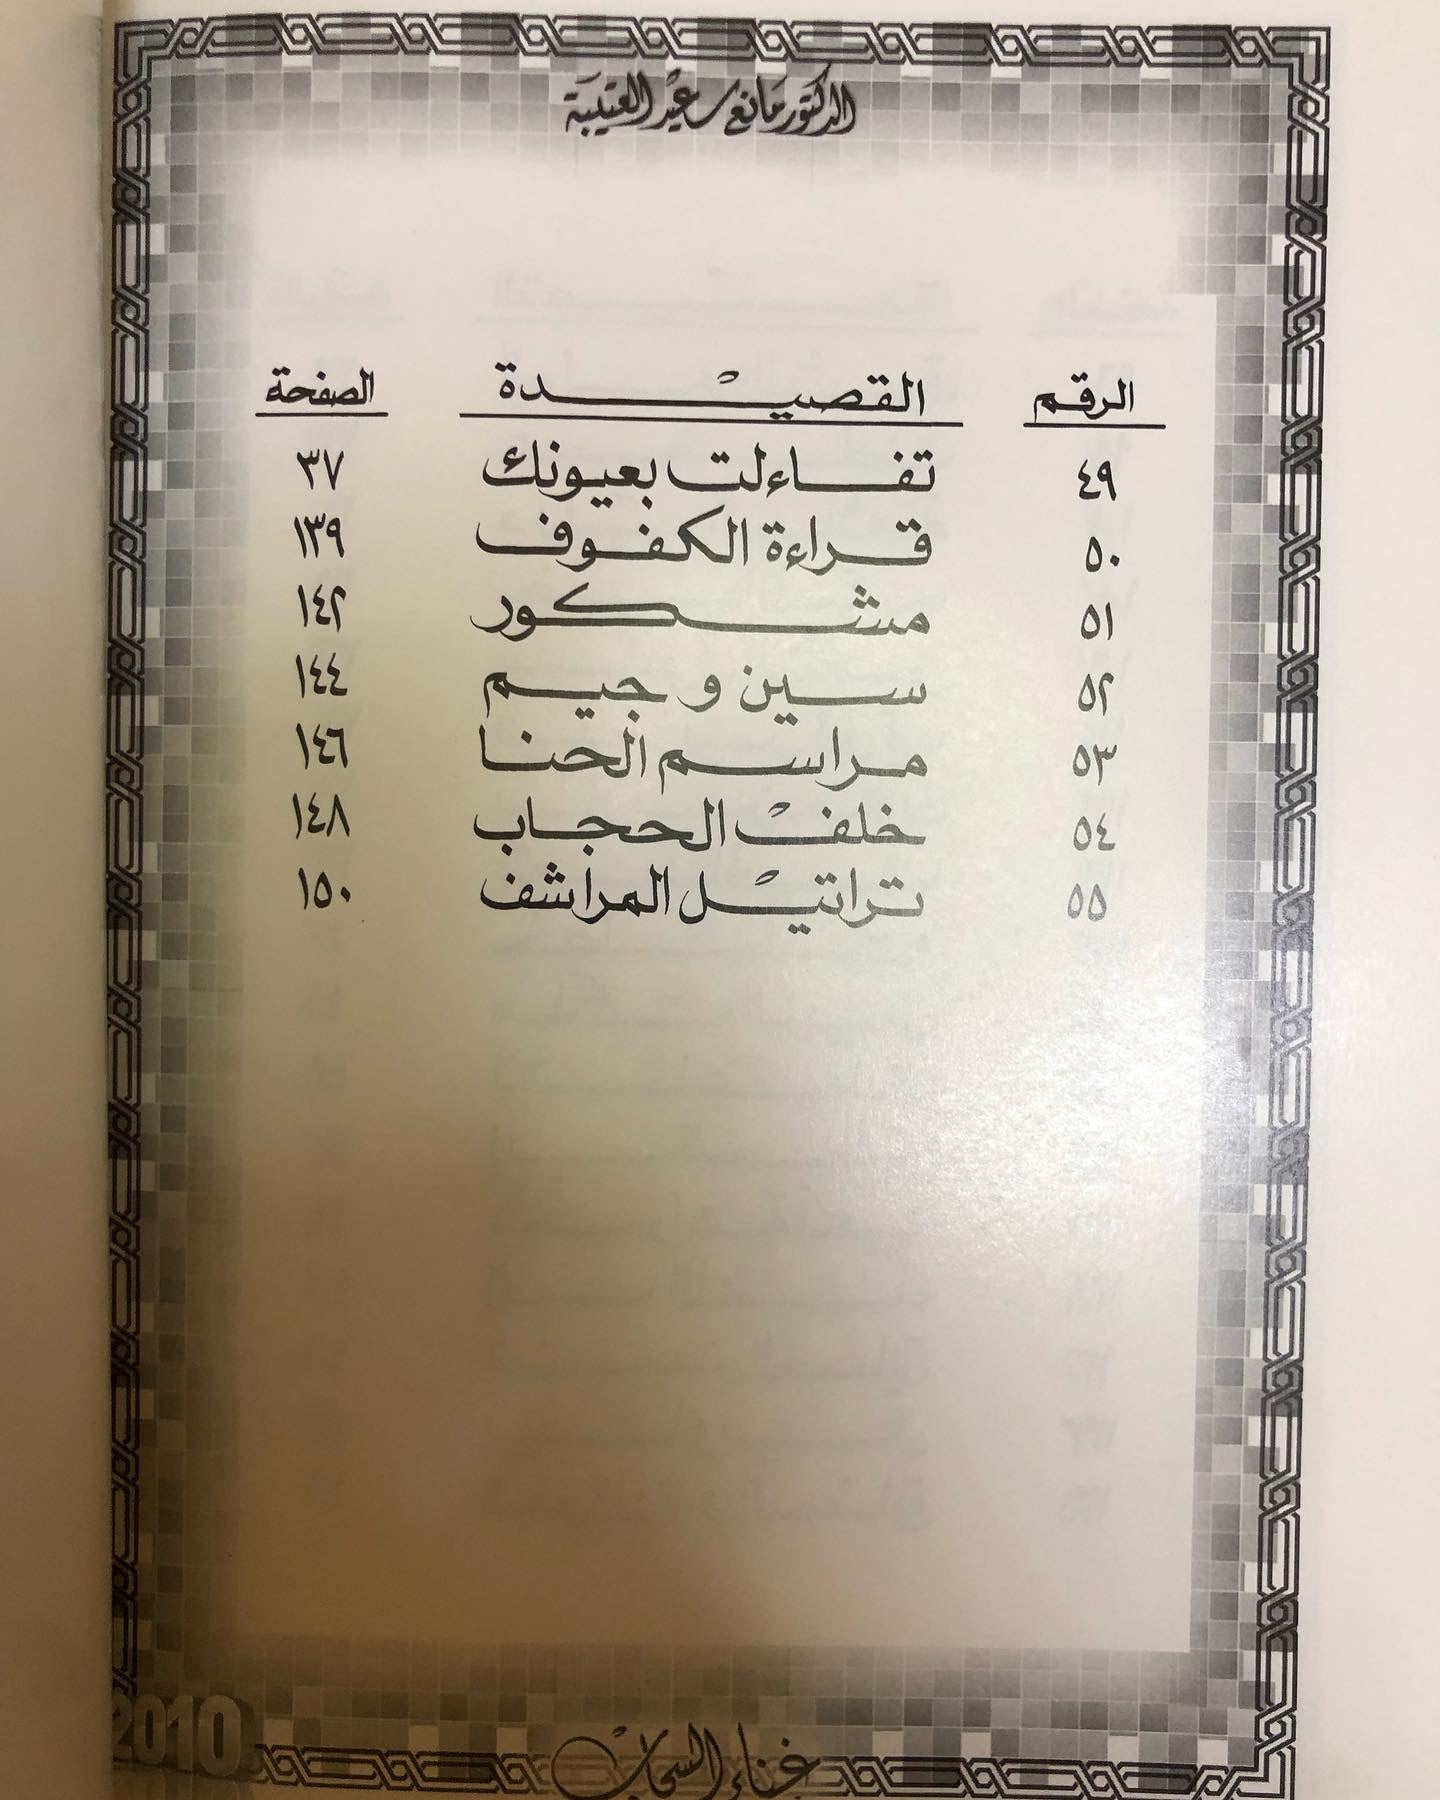 الدكتور مانع سعيد العتيبة
الرقم القصيدة الصفحة
٤٩ تفاءلت بعيونك ٣٧
٥٠ قراءة الكفوف ١٣٩
٥١ مشكور ١٤٢
٥٢ سين و جيم ١٤٤
٥٣ مراسم الحنا ١٤٦
٥٤ خلف الحجاب ١٤٨
٥٥ تراتيل المراشف ١٥٠
2010
غناء السحاب